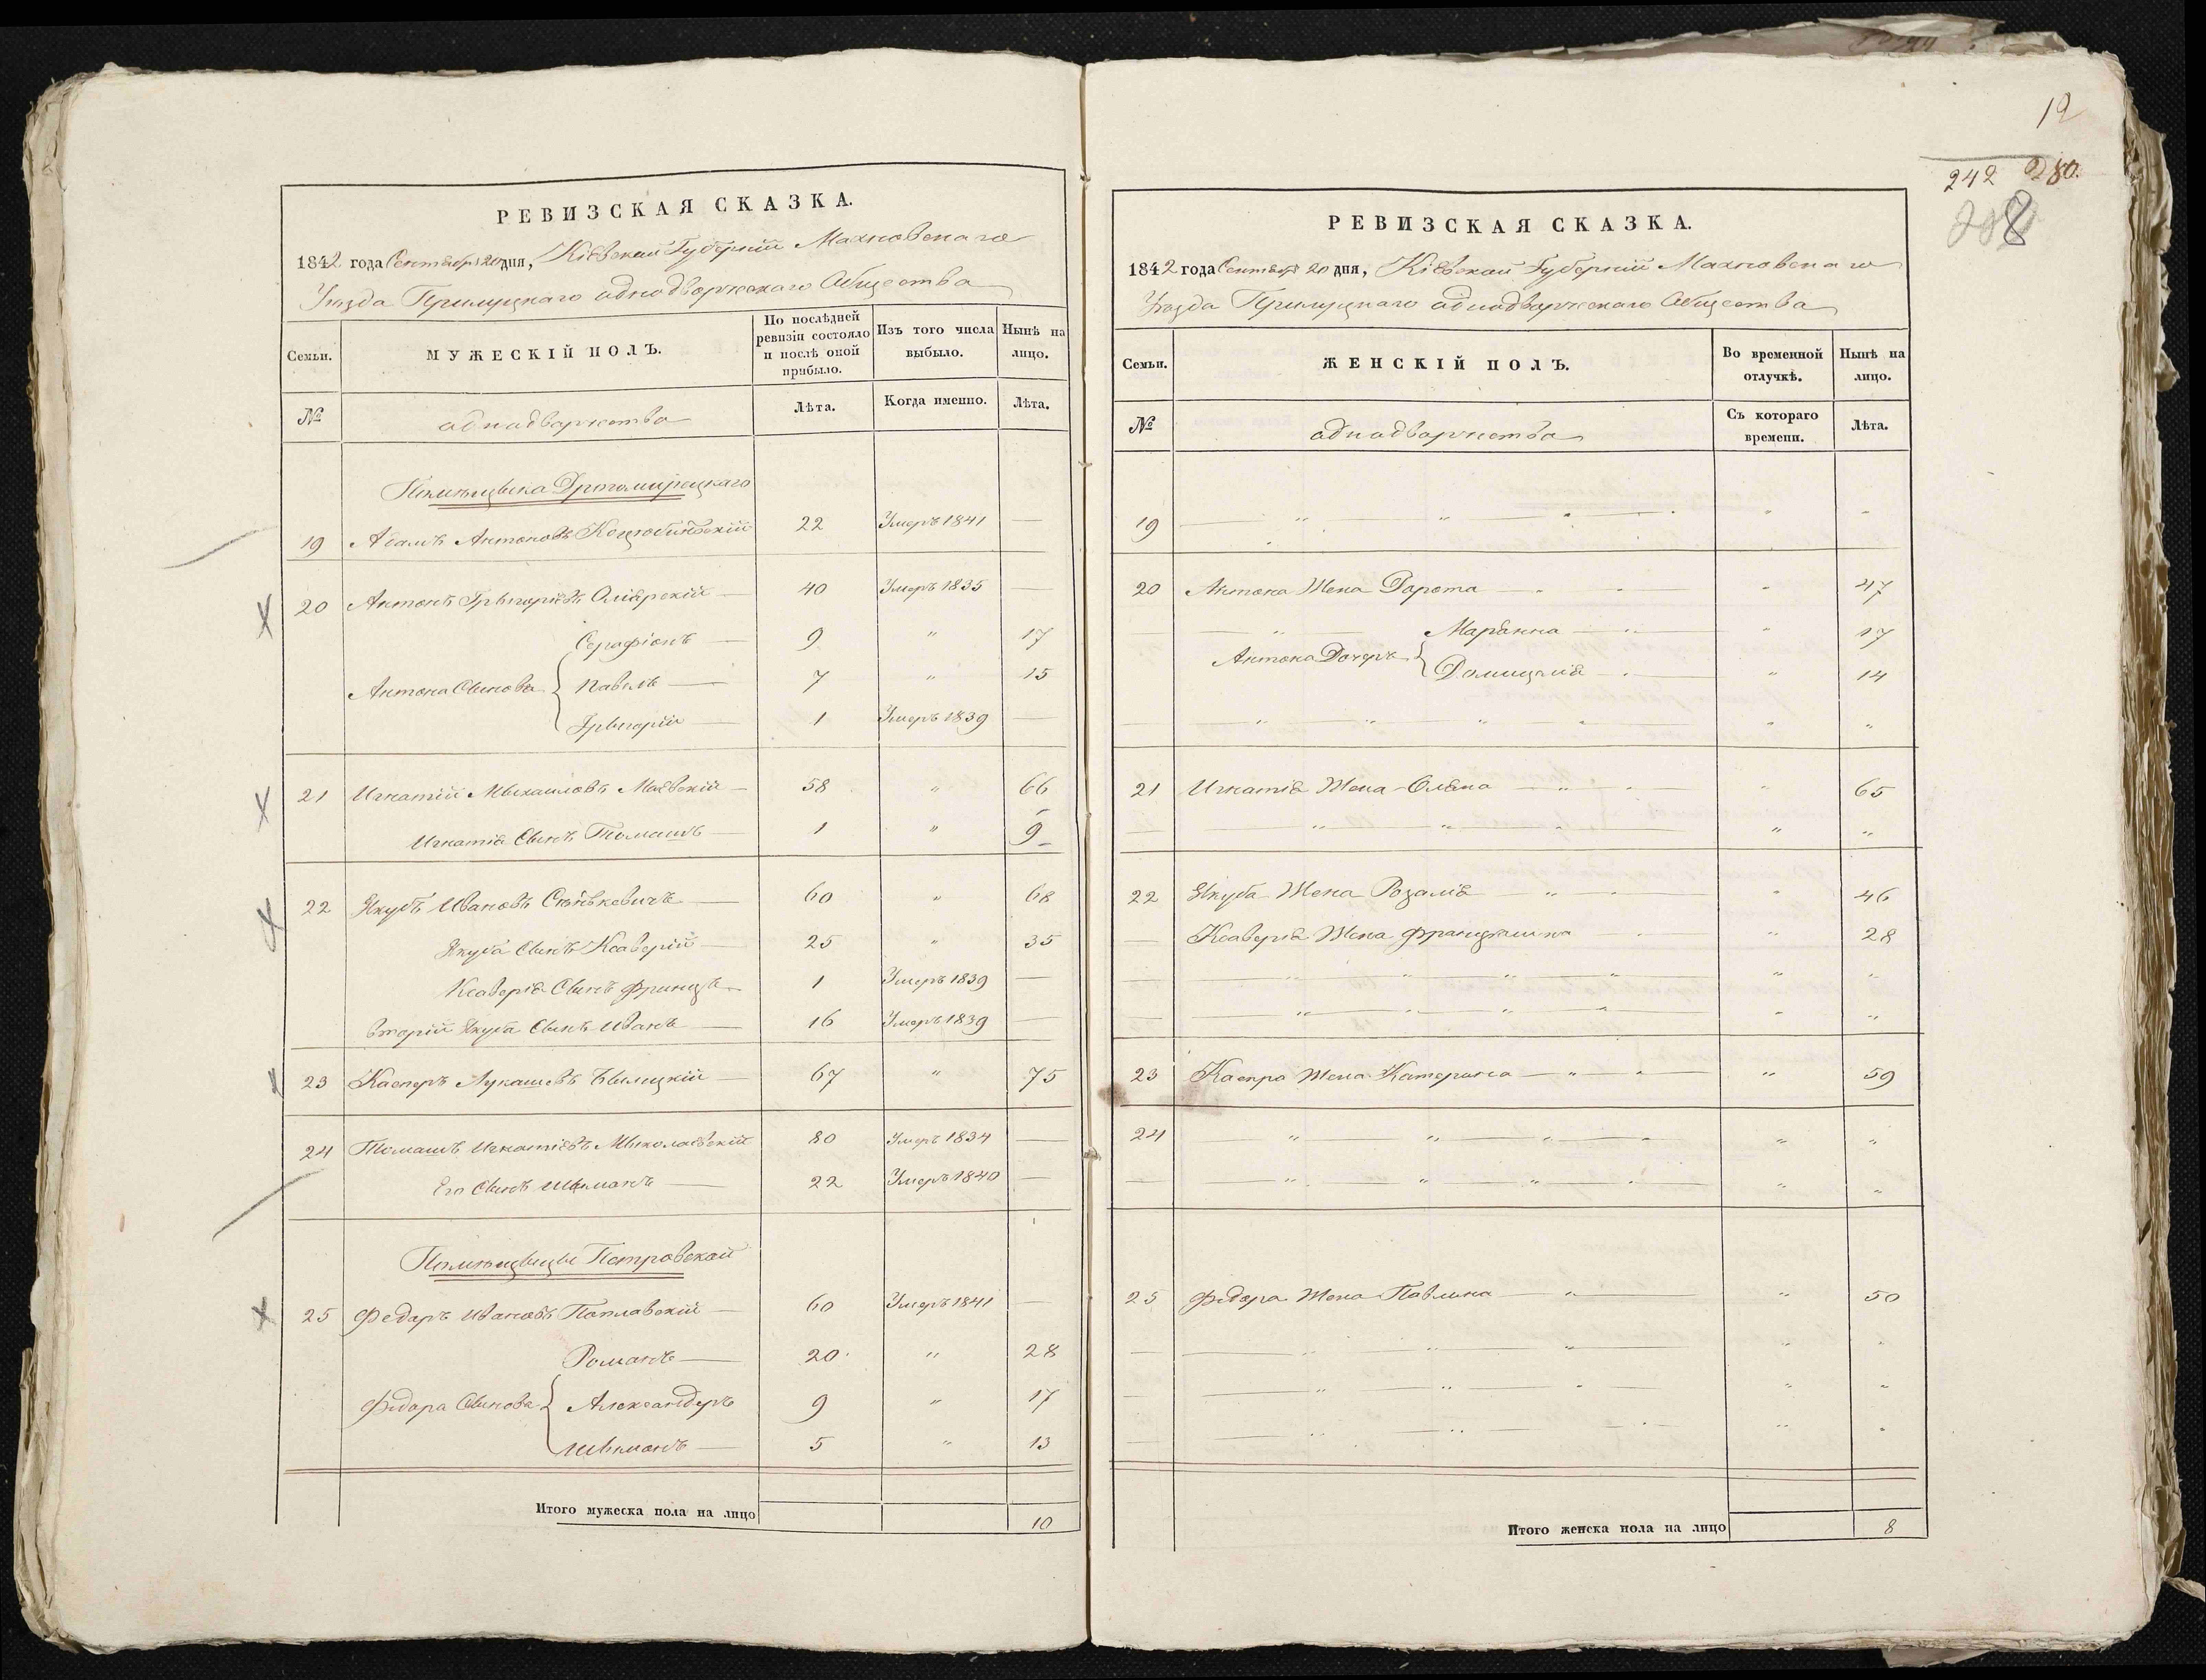 РЕВИЗСКАЯ СКАЗКА.
1842 года Сентября 20 дня, Кіевской Губерніи Махновскаго
Уѣзда Прилуцкаго однодворческаго Общества
Семьи.
МУЖЕСКІЙ ПОЛЪ.
По послѣдней ревизіи состояло и послѣ оной прибыло.
Изъ того числа выбыло.
Нынѣ на лицо.
№
однодворчества
Лѣта.
Когда именно.
Лѣта.
Помѣщика Дрогомирецкаго
19 Адамъ Антоновъ Коцюбинскій 22 Умеръ 1841 —
20 Антонъ Грыгоріевъ Олѣрскій — 40 Умеръ 1835 —
Серафіонъ — 9 " 17
Антона Сынова { Павелъ — 7 " 15
Грыгорій — 1 Умеръ 1839 —
21 Игнатій Мыхаиловъ Маевскій — 58 " 66
Игнатія Сынъ Томашъ — 1 " 9
22 Якубъ Ивановъ Сѣнькевичъ — 60 " 68
Якуба Сынъ Ксаверій — 25 " 35
Ксаверія Сынъ Францъ — 1 Умеръ 1839 —
вторій Якуба Сынъ Иванъ — 16 Умеръ 1839 —
23 Касперъ Лукашевъ Былицкій — 67 " 75
24 Томашъ Игнатіевъ Мыколаевскій 80 Умеръ 1834 —
Его Сынъ Шыманъ — 22 Умеръ 1840 —
Помѣщицы Петровской
25 Федоръ Ивановъ Поплавскій — 60 Умеръ 1841 —
Романъ — 20 " 28
Федора Сынова { Александеръ 9 " 17
Шыманъ — 5 " 13
Итого мужеска пола на лицо 10
12
242 280.
РЕВИЗСКАЯ СКАЗКА.
1842 года Сентября 20 дня, Кіевской Губерніи Махновскаго
Уѣзда Прилуцкаго однодворческаго Общества
Семьи.
ЖЕНСКІЙ ПОЛЪ.
Во временной отлучкѣ.
Нынѣ на лицо.
№
однодворчества
Съ котораго времени.
Лѣта.
19 — " " " " "
20 Антона Жена Дорота — " 47
Марянна — " 17
Антона Дочеръ { Домицеля — " 14
21 Игнатія Жена Оляна — " 65
22 Якуба Жена Розалія — " 46
Ксаверія Жена Францышка " 28
23 Каспра Жена Катерина — " 59
24 " " " " " "
25 Федора Жена Павлина — " 50
Итого женска пола на лицо 8